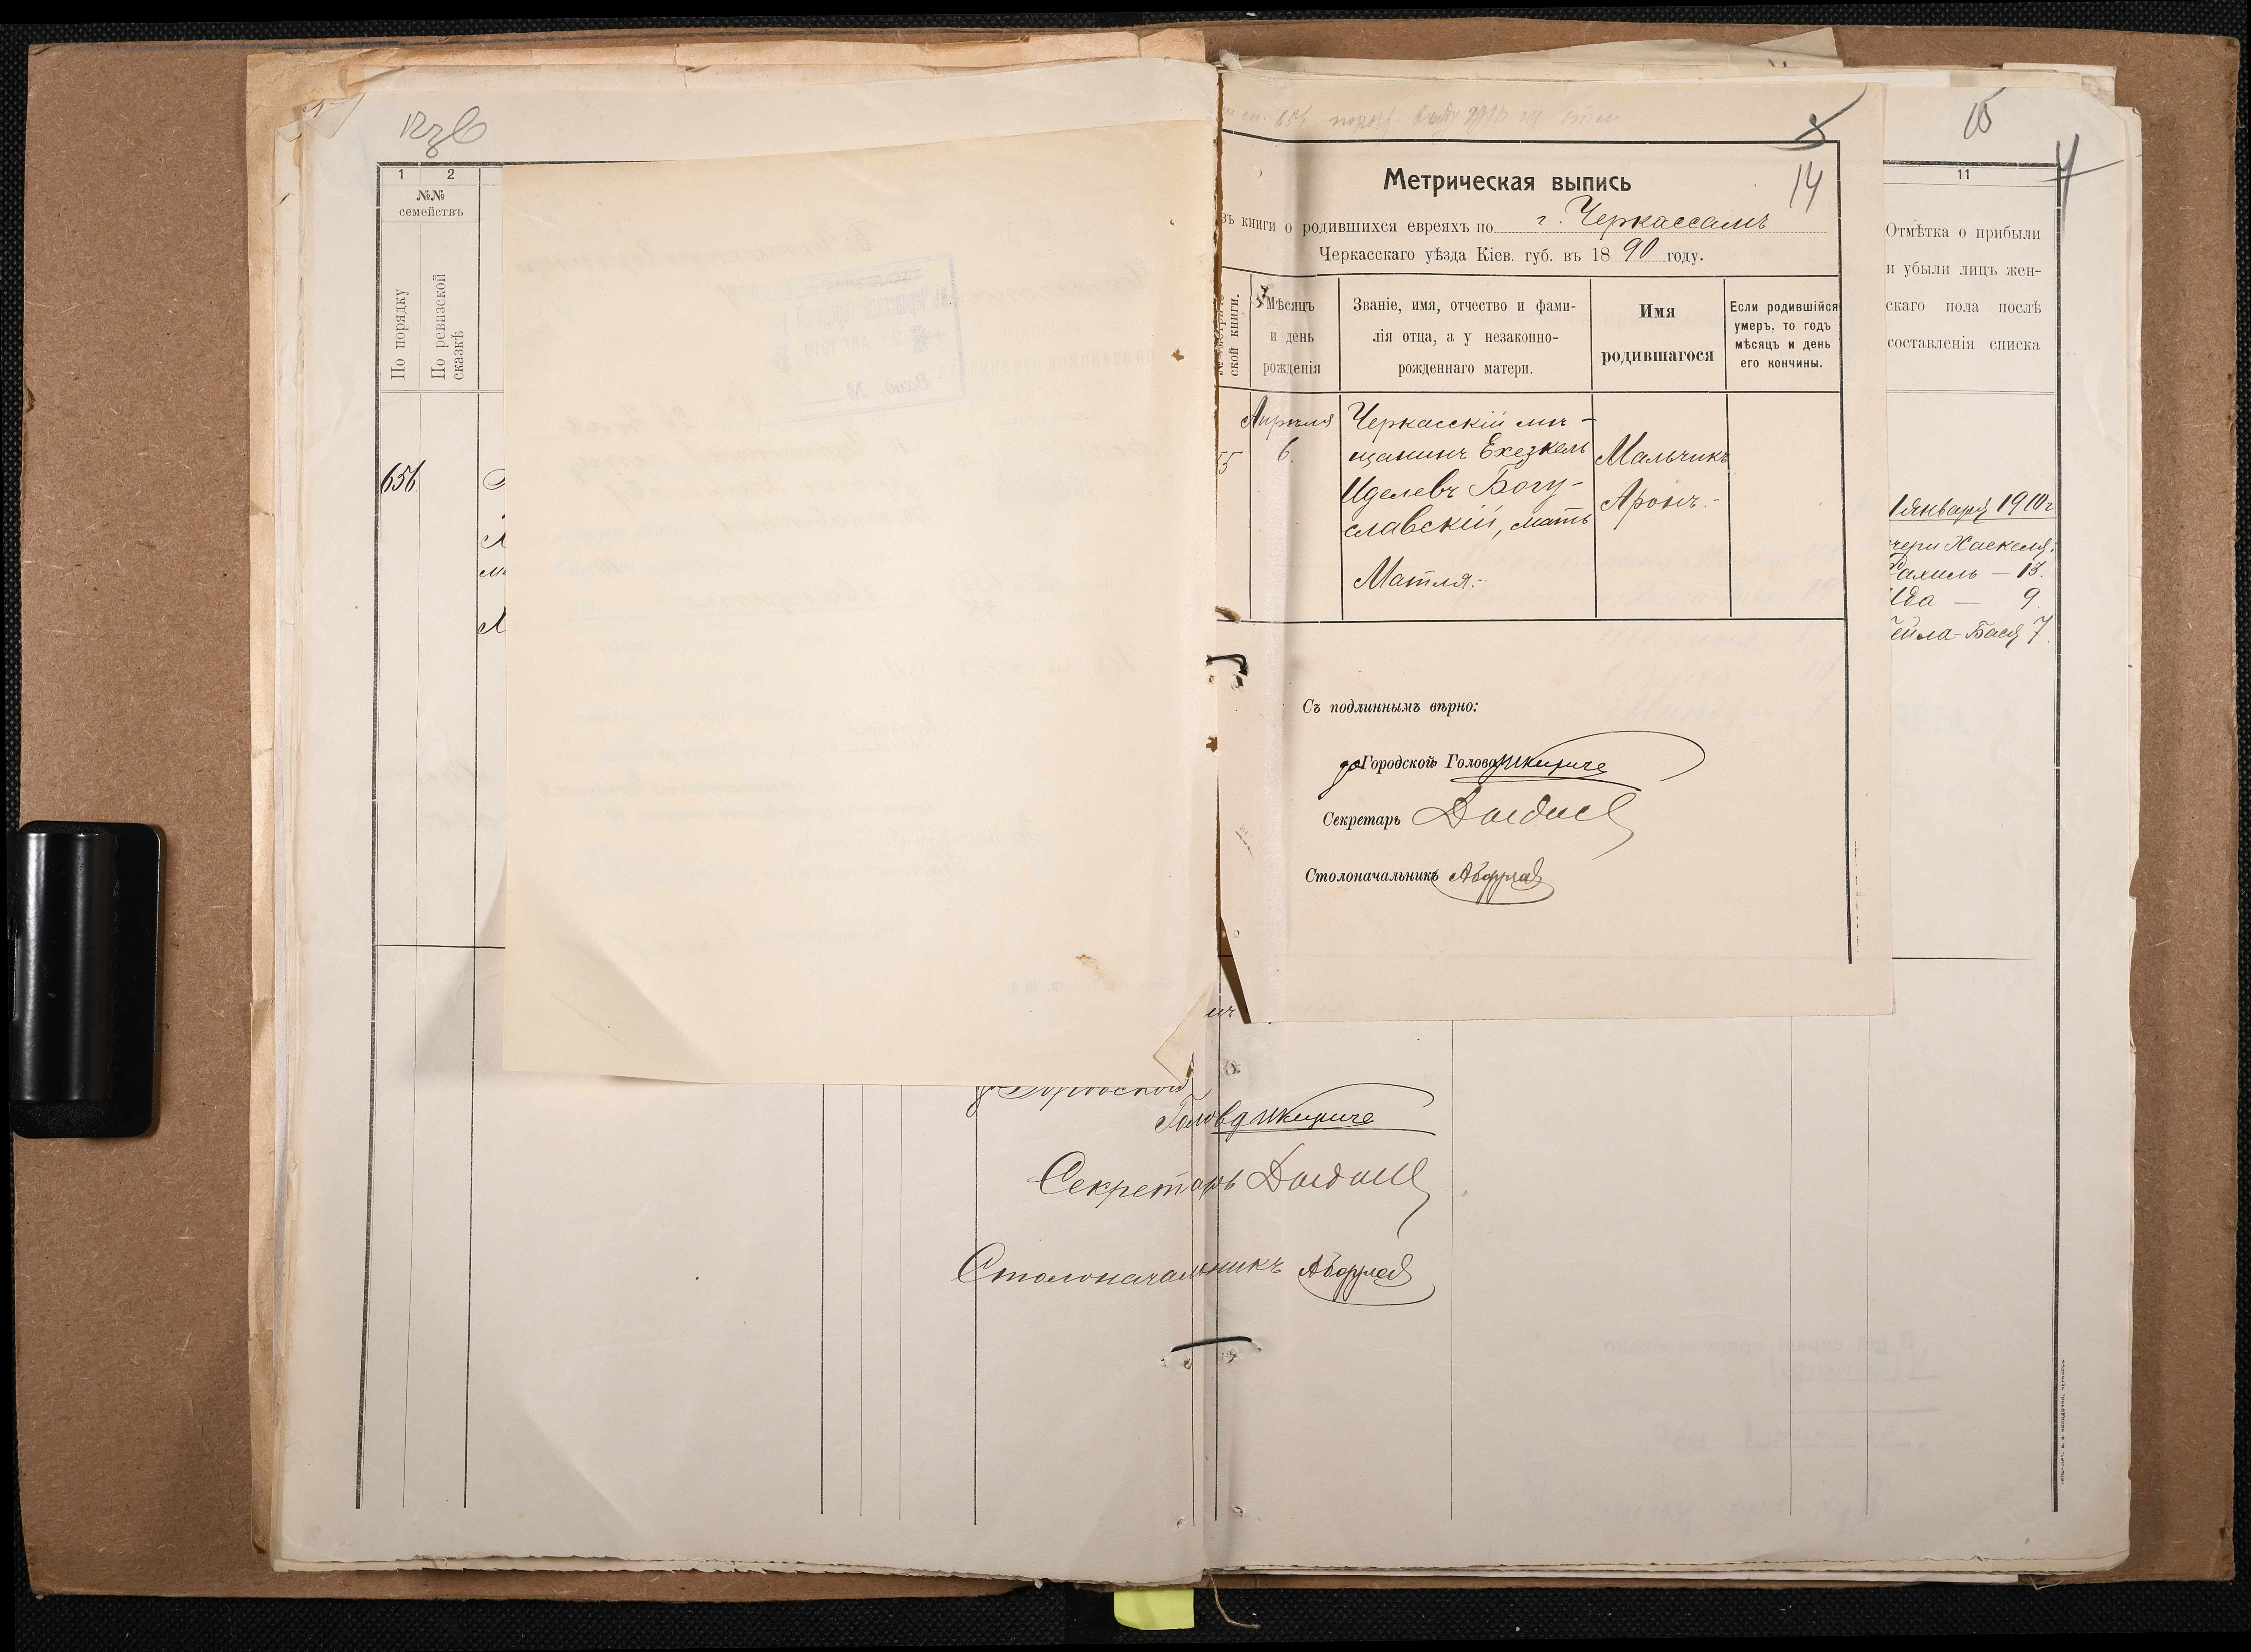 1 2
№№
семействъ
По порядку
По ревизской
сказкѣ
656
14
Метрическая выпись
книги о родившихся евреяхъ по г. Черкассамъ
Черкасскаго уѣзда Кіев. губ. въ 1890 году.
ской книги.
Мѣсяцъ
и день
рожденія
Званіе, имя, отчество и фами-
лія отца, а у незаконно-
рожденнаго матери.
Имя
родившагося
Если родившійся
умеръ, то годъ
мѣсяцъ и день
его кончины.
55
Апрѣля
6.
Черкасскій мѣ-
щанинъ Ехезкель
Иделевъ Богу-
славскій, мать
Матля.-
Мальчикъ
Аронъ.-
Съ подлиннымъ вѣрно:
Городской Голова
Секретарь
Столоначальникъ
15
11
Отмѣтка о прибыли
и убыли лицъ жен-
скаго пола послѣ
составленія списка
1 января 1910 г
чери Хаскеля:
Рахиль — 13.
Ида — 9.
Бася 7.
Городской
Голова
Секретарь
Столоначальникъ